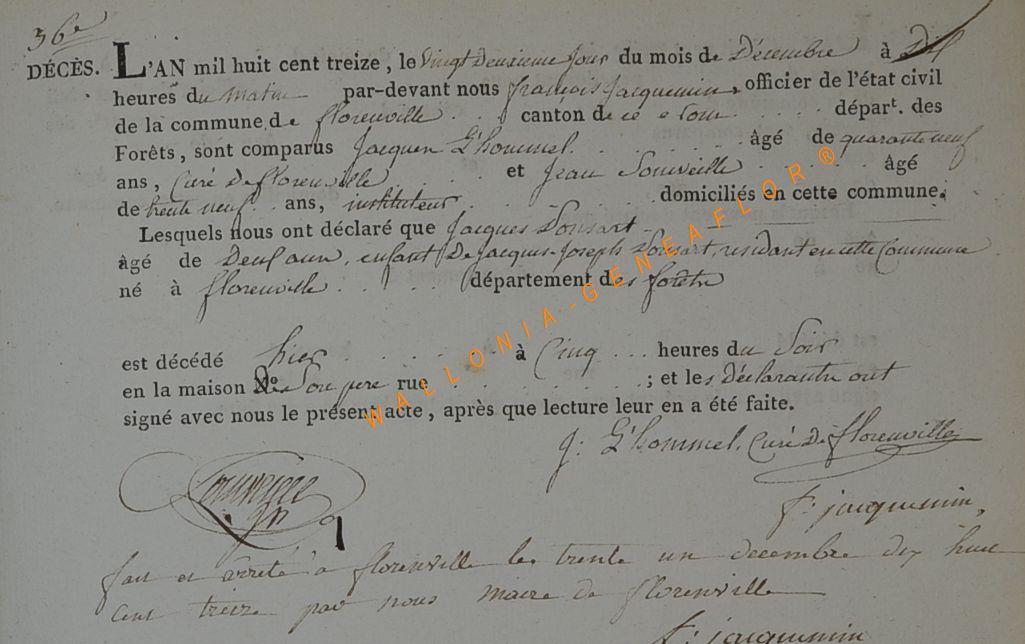 36e
DÉCÈS. L'AN mil huit cent treize, le Vingt Deuxieme Jour du mois de Décembre à Dix
heures du matin par-devant nous françois Jacquemin, officier de l'état civil
de la commune de florenville canton de ce nom départ. des
Forêts, sont comparus Jacques L'hommel âgé de quarante neuf
ans, Curé De florenville et Jean âgé
de trente neuf ans, instituteur domiciliés en cette commune.
Lesquels nous ont déclaré que Jacques Ponsart
âgé de Deux ans, enfant De Jacques-Joseph Ponsart, residant en cette Commune
né à florenville département des forêts
est décédé hier à Cinq heures du Soir
en la maison De Son pere rue ; et les Déclarants ont
signé avec nous le présent acte, après que lecture leur en a été faite.
J: L'hommel, Curé De florenville
f: jacquemin,
fait et arrêté à florenville le trente un decembre dix huit
cent treize par nous maire de florenville
f: jacquemin
WALLONIA-GENEAFLOR®